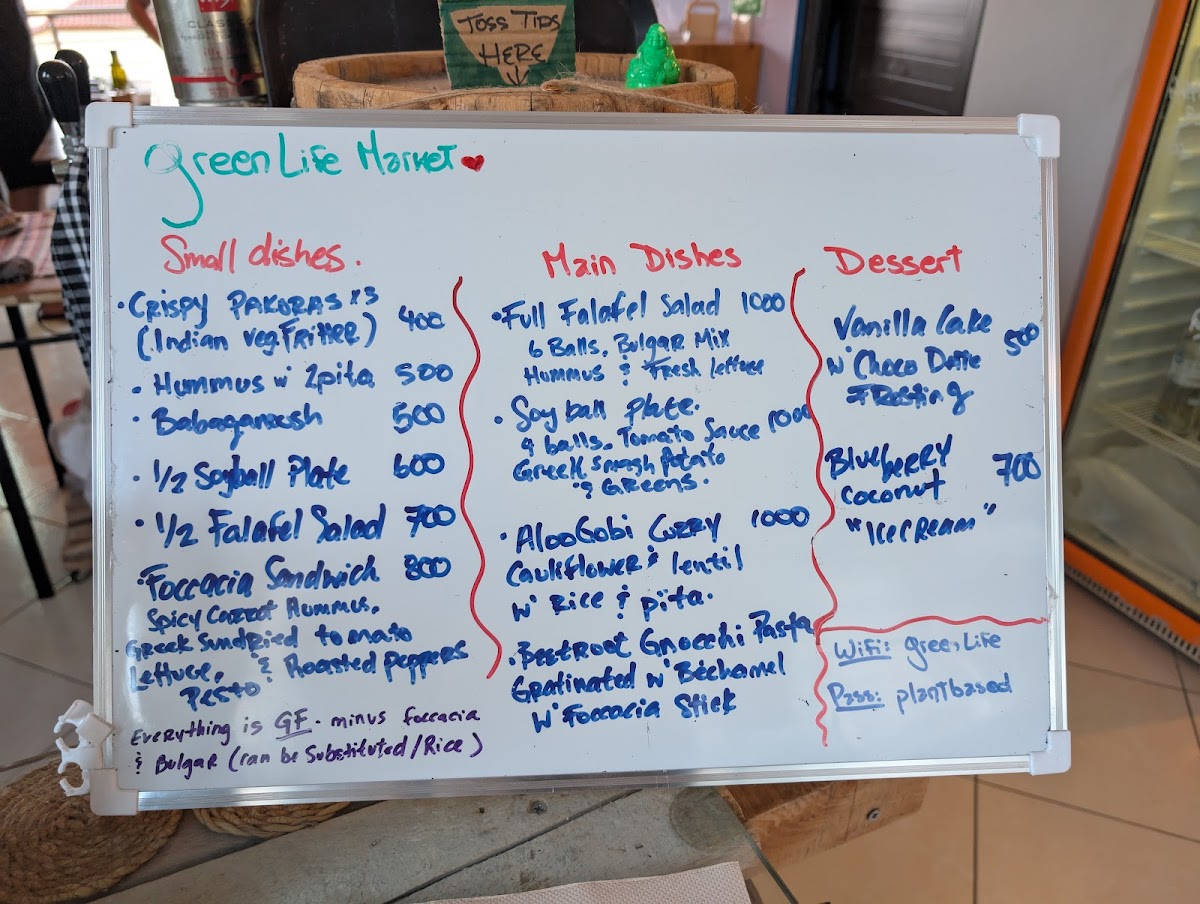 TOSS TIPS
HERE
CLASSI
green Life Market
Small dishes.
• Crispy PAKORAS x3
(Indian veg Fritter) 400
• Hummus w' 2pita 500
• Babaganoush 500
• 1/2 Soyball Plate 600
• 1/2 Falafel Salad 700
• Foccacia Sandwich 800
Spicy Carrot Hummus,
Greek Sundried tomato
Lettuce, & Roasted Peppers
Pesto
Everything is GF. minus foccacia
& Bulgar (can be Substituted/Rice)
Main Dishes
• Full Falafel Salad 1000
6 Balls, Bulgar Mix
Hummus & Fresh lettuce
• Soy ball plate. 1000
9 balls, Tomato Sauce
Greek Smash Potato
& Greens.
• AlooGobi Curry 1000
Cauliflower & lentil
w' Rice & pita.
• Beetroot Gnocchi Pasta
Gratinated w' Bechamel
w' Foccacia Stick
Dessert
Vanilla Cake 500
w' Choco Date
Frosting
Blueberry 700
Coconut
"Icecream"
WiFi: greenLife
Pass: plantbased